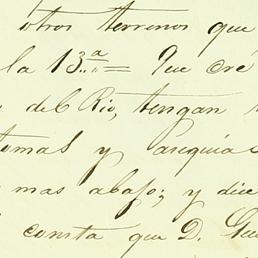 otros terrenos que
la 13.ª = Que cré
del Rio, tengan
tomas y asequias
mas abajo; y dice
consta que D. Gu